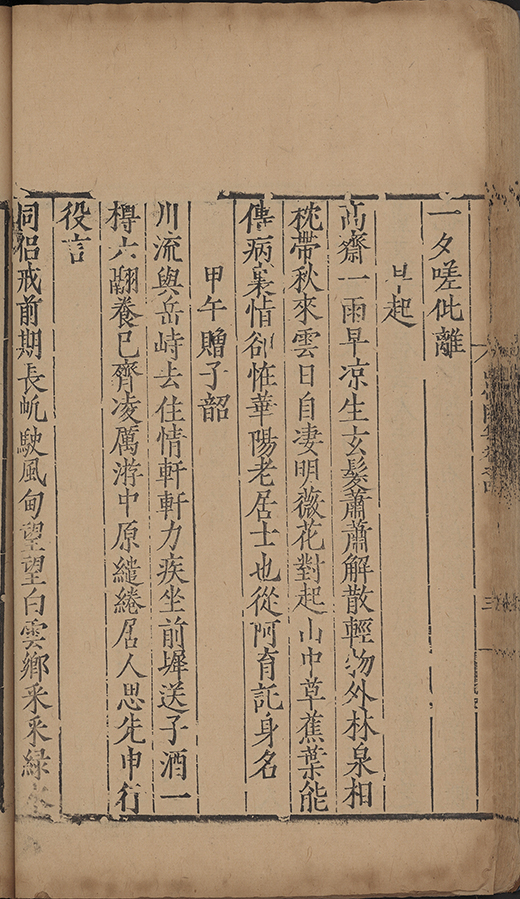 一夕嗟仳離
早起
高齋一雨早凉生玄髮蕭蕭解散輕物外林泉相
枕帶秋來雲日自淒明薇花對起山中草蕉葉能
傳病裏情卻恠華陽老居士也從阿育託身名
甲午贈子韶
川流與岳峙去住情軒軒力疾坐前墀送子酒一
樽六翮養已齊凌厲游中原繾綣居人思先申行
役言
同侶戒前期長㠶駛風甸望望白雲鄉釆釆緑
三